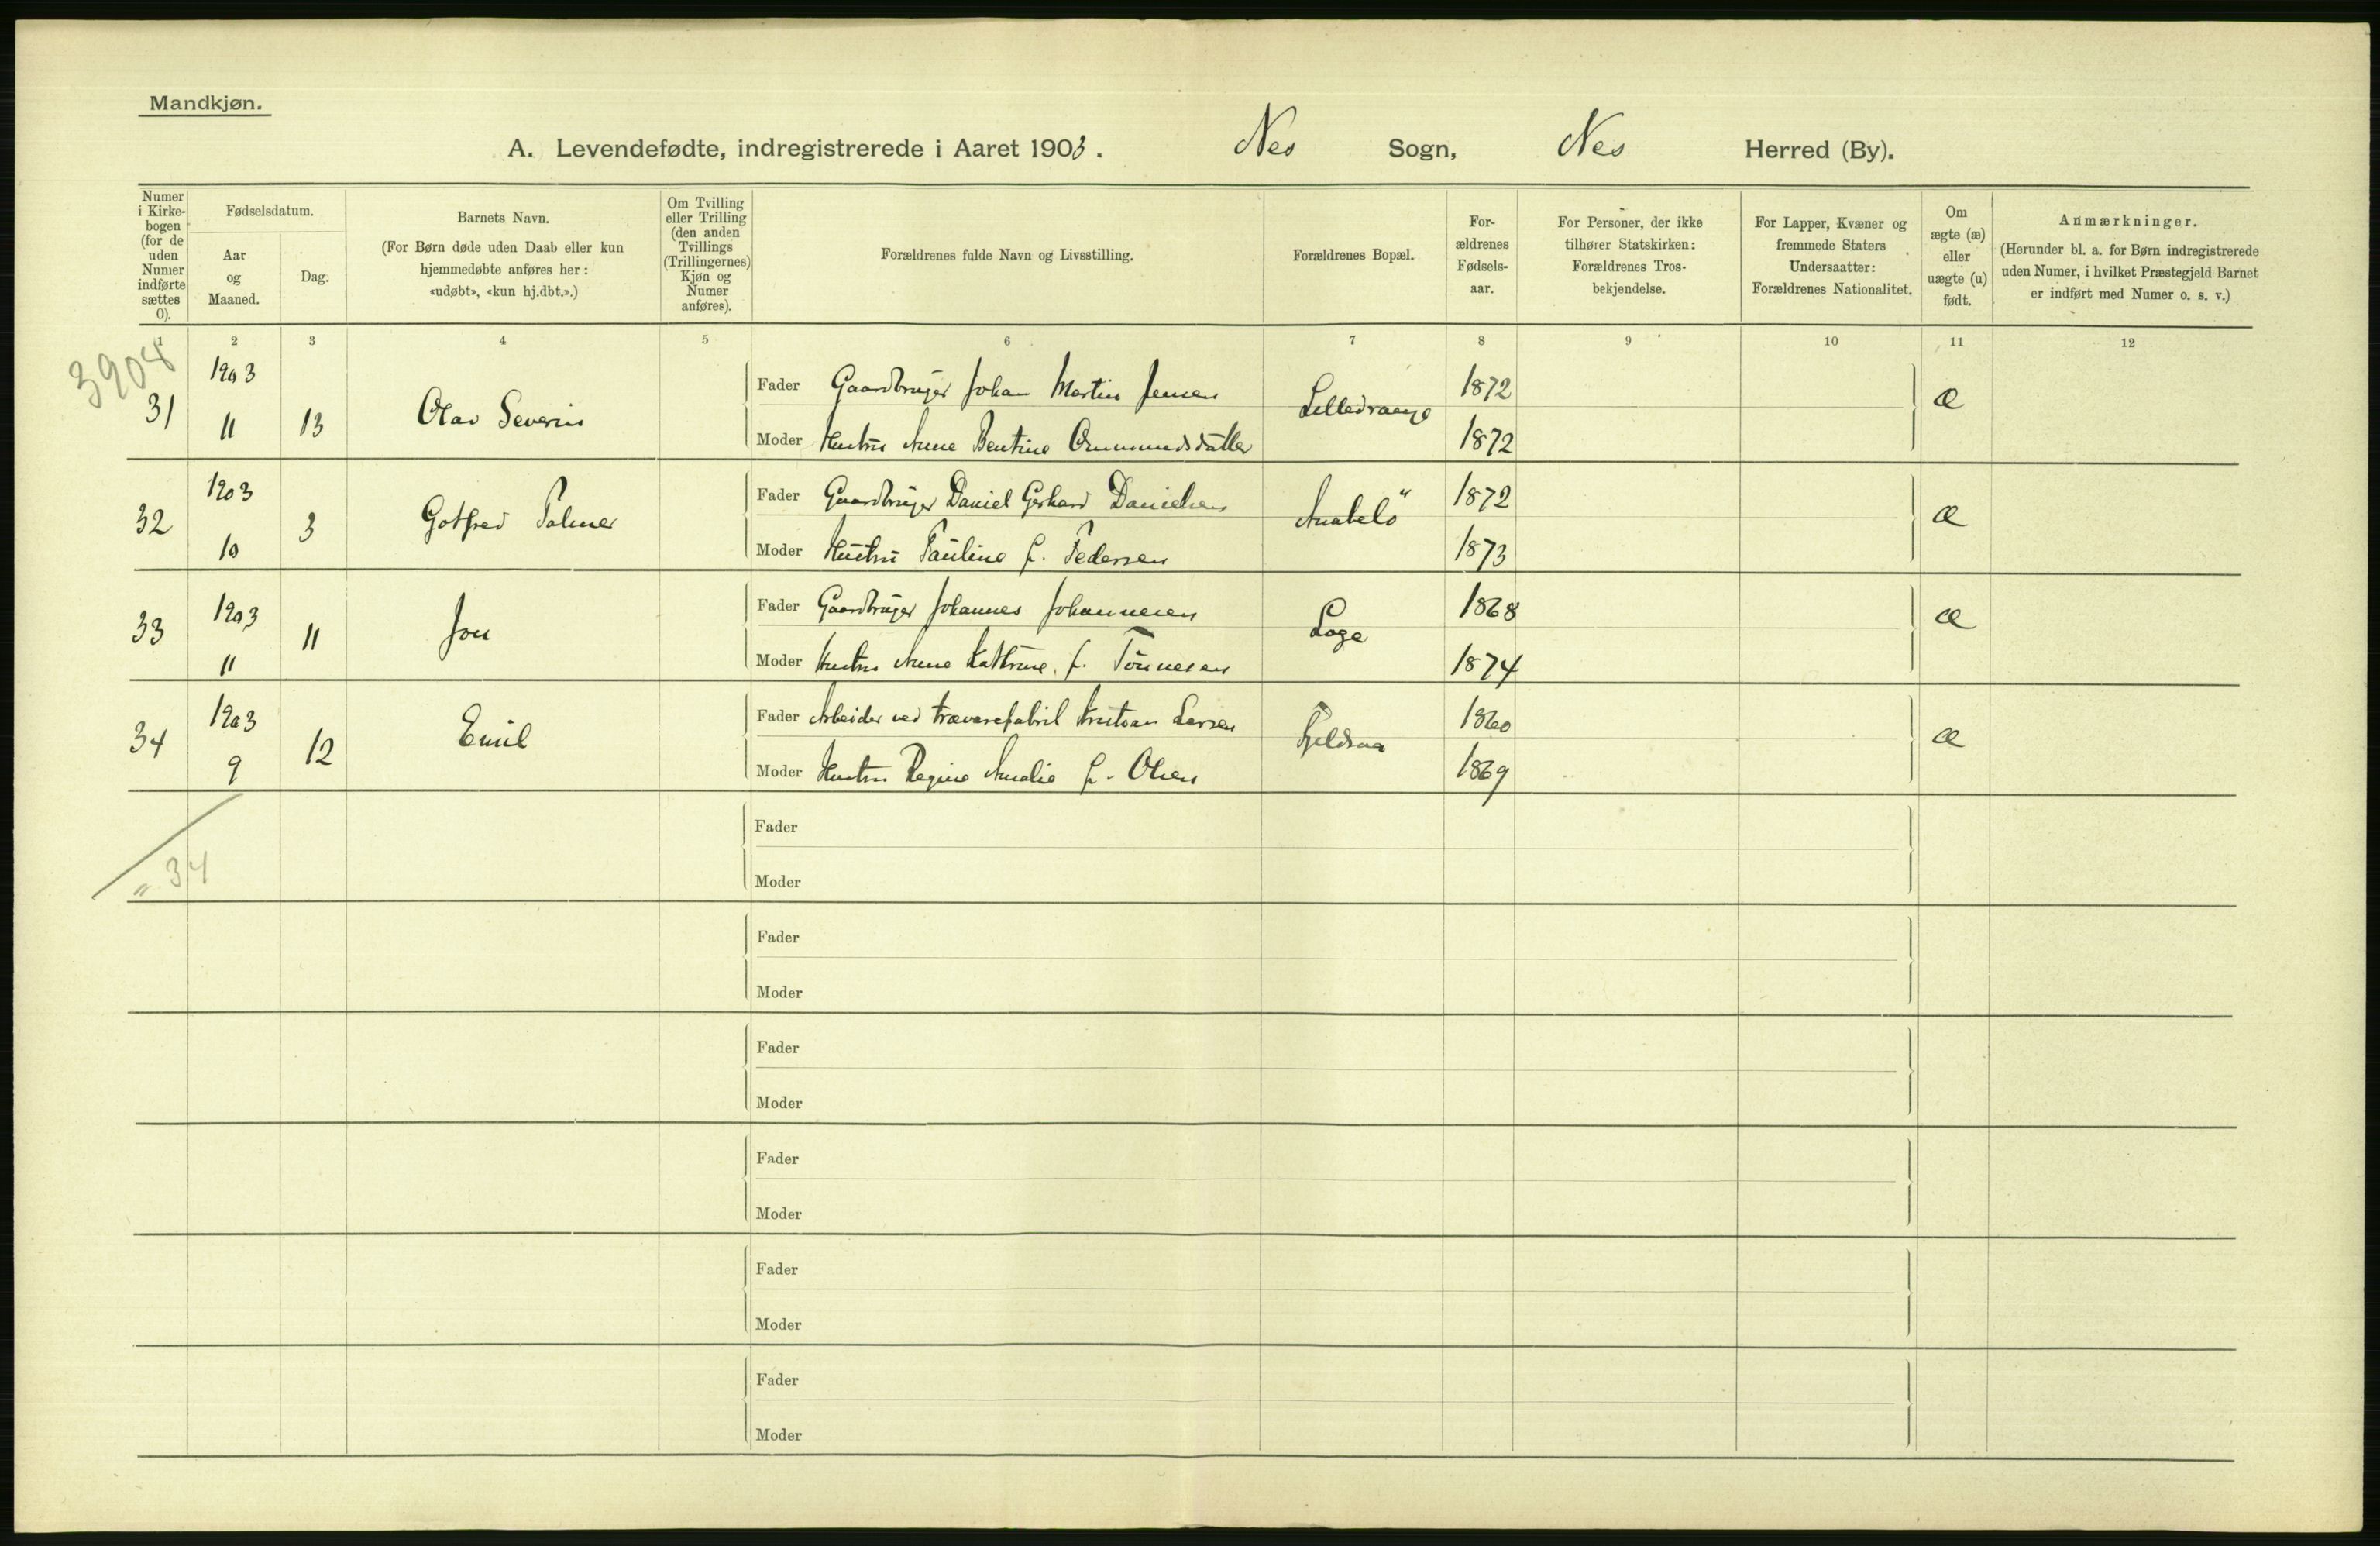 Mandkjøn.
A. Levendefødte, indregistrerede i Aaret 1903. Nes Sogn, Nes Herred (By).
Numer i Kirke-bogen (for de uden Numer indførte sættes 0).
Fødselsdatum.
Aar og Maaned.
Dag.
Barnets Navn.
(For Børn døde uden Daab eller kun
hjemmedøbte anføres her :
«udøbt», «kun hj.dbt.».)
Om Tvilling
eller Trilling
(den anden
Tvillings
(Trillingernes)
Kjøn og
Numer
anføres).
Forældrenes fulde Navn og Livsstilling.
Forældrenes Bopæl.
For-
ældrenes
Fødsels-
aar.
For Personer, der ikke
tilhører Statskirken:
Forældrenes Tros-
bekjendelse.
For Lapper, Kvæner og
fremmede Staters
Undersaatter:
Forældrenes Nationalitet.
Om
ægte (æ)
eller
uægte (u)
født.
Anmærkninger.
(Herunder bl. a. for Børn indregistrerede
uden Numer, i hvilket Præstegjeld Barnet
er indført med Numer o. s. v.)
1 2 3 4 5 6 7 8 9 10 11 12
3904
31 1903 11 13 Olav Severin
Fader Gaardbruger Johan Martin Jensen 1872
Moder Hustru Anne Bentine Ommundsdatter 1872
æ
32 1903 10 3 Gotfred Palmer
Fader Gaardbruger Daniel Gerhard Danielsen Anabelø 1872
Moder Hustru Pauline f. Pedersen 1873
æ
33 1903 11 11 Jon
Fader Gaardbruger Johannes Johannesen Loge 1868
Moder Hustru Anne Kathrine f. Tønnesen 1874
æ
34 1903 9 12 Emil
Fader Arbeider ved trævarefabrik Kristian Larsen 1860
Moder Hustru Regine Amalie f. Olsen 1869
æ
Fader
" 34
Moder
Fader
Moder
Fader
Moder
Fader
Moder
Fader
Moder
Fader
Moder